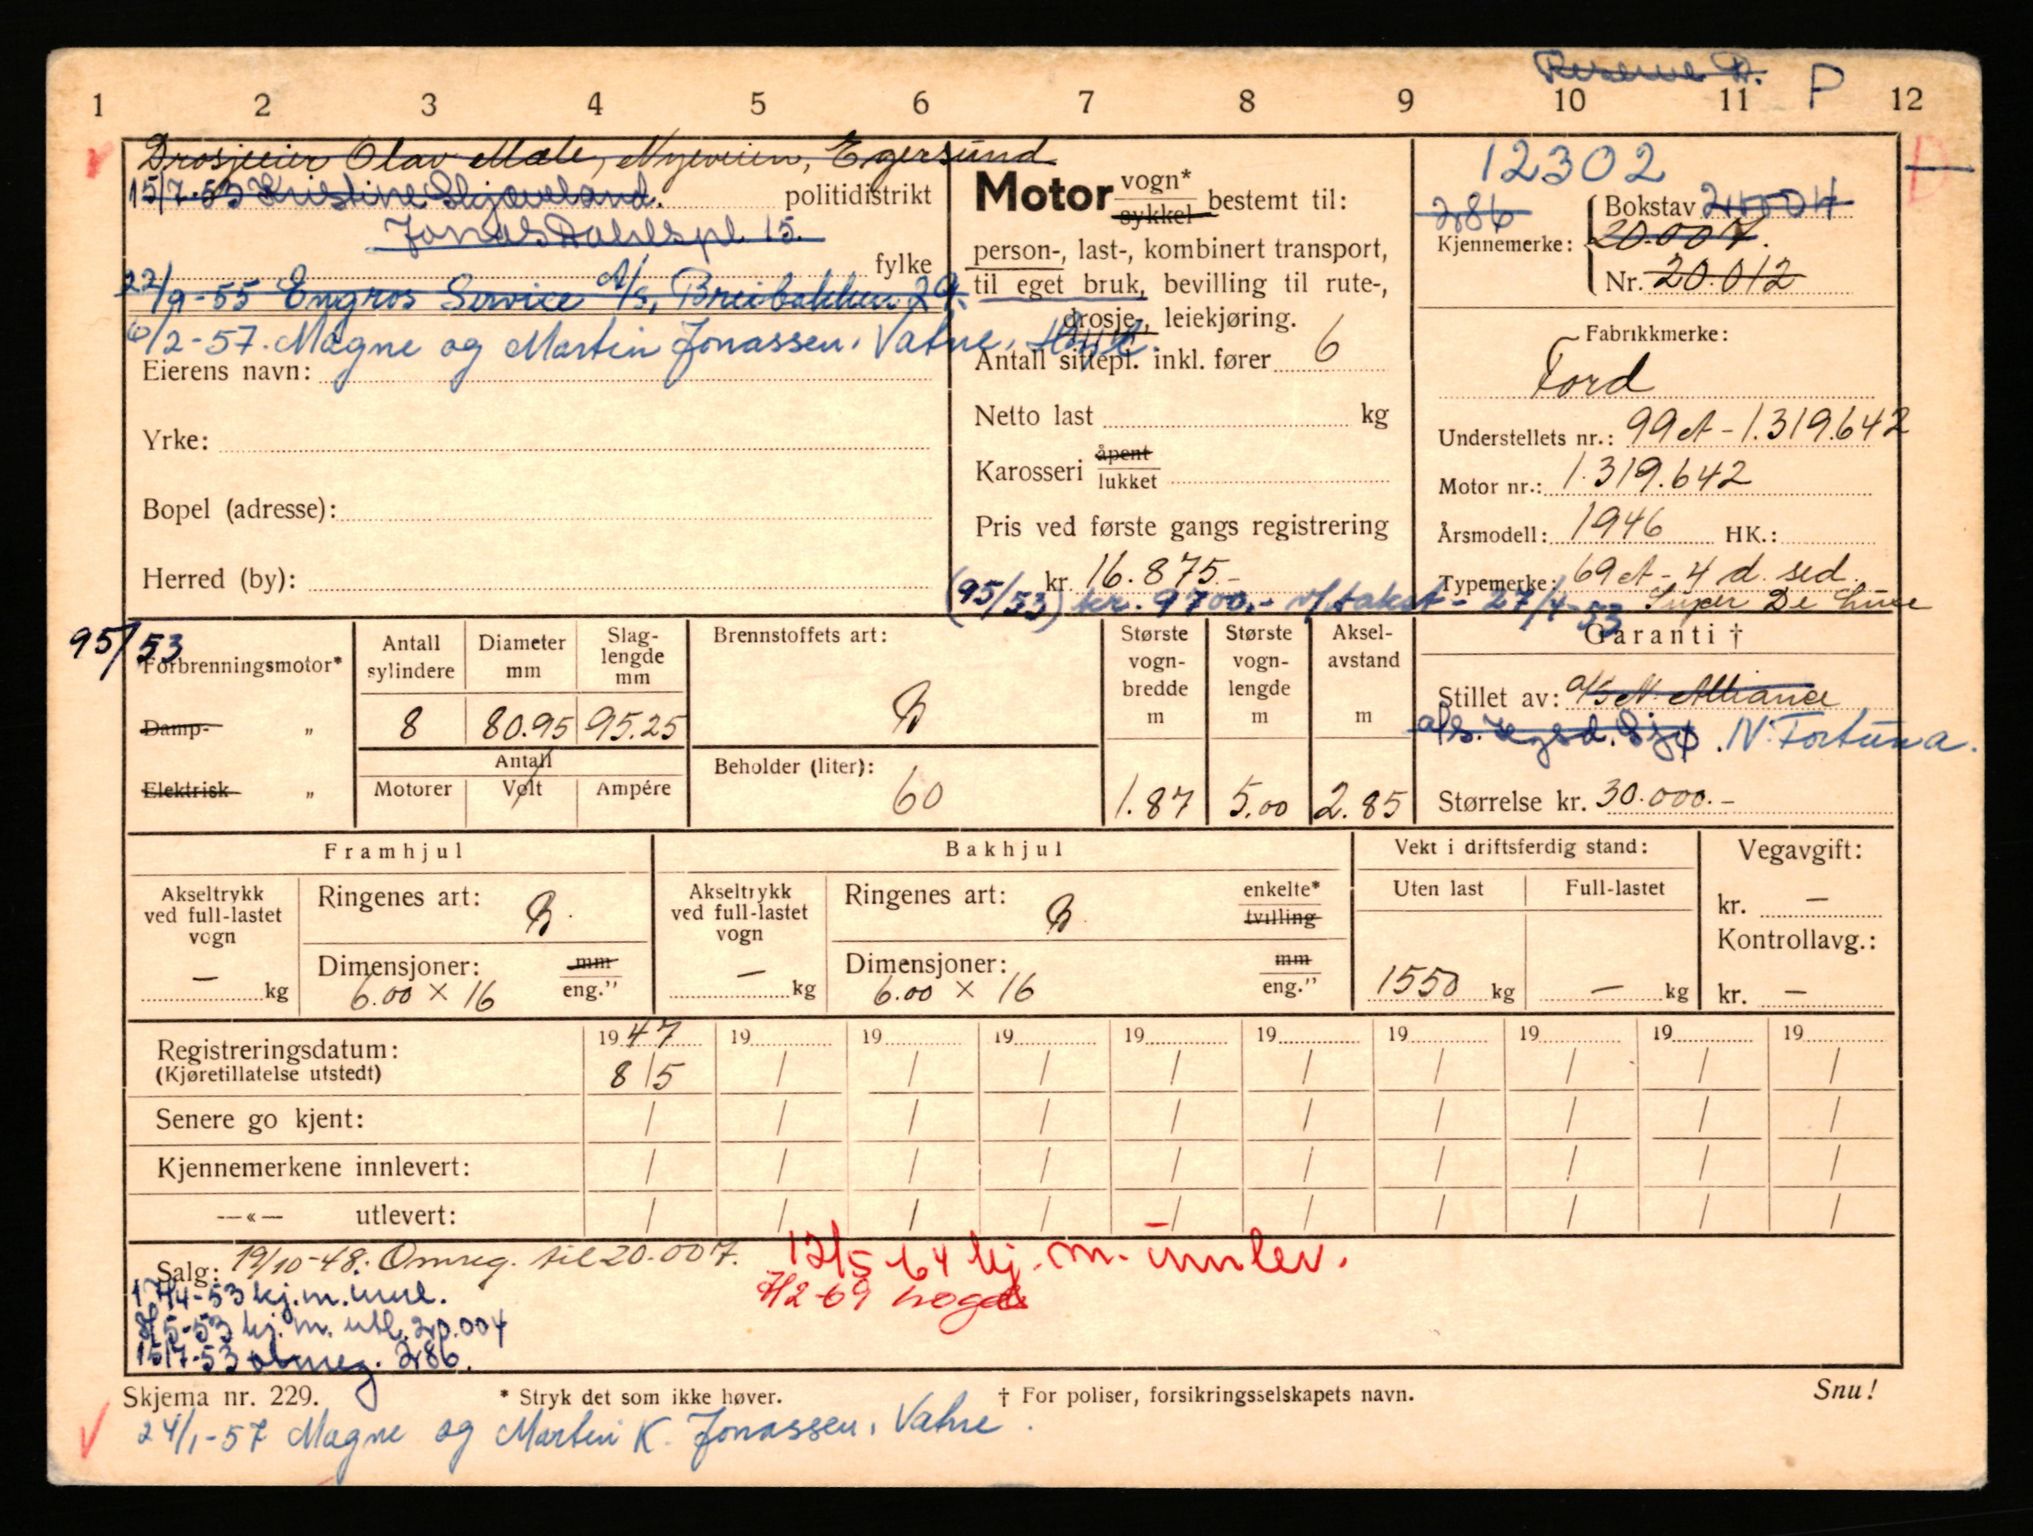 Reserve D. P
1 2 3 4 5 6 7 8 9 10 11 12
Drosjeeier Olav Mæle, Nyeveien, Egersund
15/7-53 Kristine Skjæveland. politidistrikt
Jonas Dahlspl 15.
fylke
22/9-55 Engros Service A/S, Breibakken 29.
6/2-57. Magne og Martin Jonassen, Vatne,
Eierens navn:
Yrke:
Bopel (adresse):
Herred (by):
Motor vogn* sykkel bestemt til:
person-, last-, kombinert transport,
til eget bruk, bevilling til rute-,
drosje-, leiekjøring.
Antall sittepl. inkl. fører 6
Netto last kg
Karosseri åpent lukket
Pris ved første gangs registrering
kr. 16.875.-
(95/53) kr. 9700,- v/takst - 27/4-53
12302
D
286 Bokstav
Kjennemerke: 20.007.
Nr. 20.012
Fabrikkmerke:
Ford
Understellets nr.: 99A - 1.319.642
Motor nr.: 1.319.642
Årsmodell: 1946 HK.:
Typemerke: 69A - 4 d. sed.
Super De Luxe
95/53
Forbrenningsmotor*
Damp- "
Elektrisk "
Antall sylindere
8
Diameter mm
80.95
Slag-lengde mm
95.25
Antall
Motorer Volt Ampére
Brennstoffets art:
B
Beholder (liter):
60
Største vogn-bredde m
1.87
Største vogn-lengde m
5.00
Aksel-avstand m
2.85
Garanti †
Stillet av: A/S N. Alliance
N. Fortuna.
Størrelse kr. 30.000.-
Framhjul
Akseltrykk ved full-lastet vogn
— kg
Ringenes art: B.
Dimensjoner: mm
6.00 × 16 eng."
Bakhjul
Akseltrykk ved full-lastet vogn
— kg
Ringenes art: B. enkelte* tvilling
Dimensjoner: mm
6.00 × 16 eng."
Vekt i driftsferdig stand:
Uten last Full-lastet
1550 kg — kg
Vegavgift:
kr. —
Kontrollavg.:
kr. —
Registreringsdatum: 1947 19 19 19 19 19 19 19 19 19
(Kjøretillatelse utstedt) 8/5 / / / / / / / / /
Senere go kjent: / / / / / / / / / /
Kjennemerkene innlevert: / / / / / / / / / /
—«— utlevert: / / / / / / / / / /
Salg: 19/10-48: Omreg. til 20.007.
12/5-64 kj.m. innlev.
17/4-53 kj.m. innl.
8/5-53 kj.m. utl. 20.004
15/7-53 omreg. 286.
Skjema nr. 229. * Stryk det som ikke høver. † For poliser, forsikringsselskapets navn. Snu!
24/1-57 Magne og Martin K. Jonassen, Vatne.